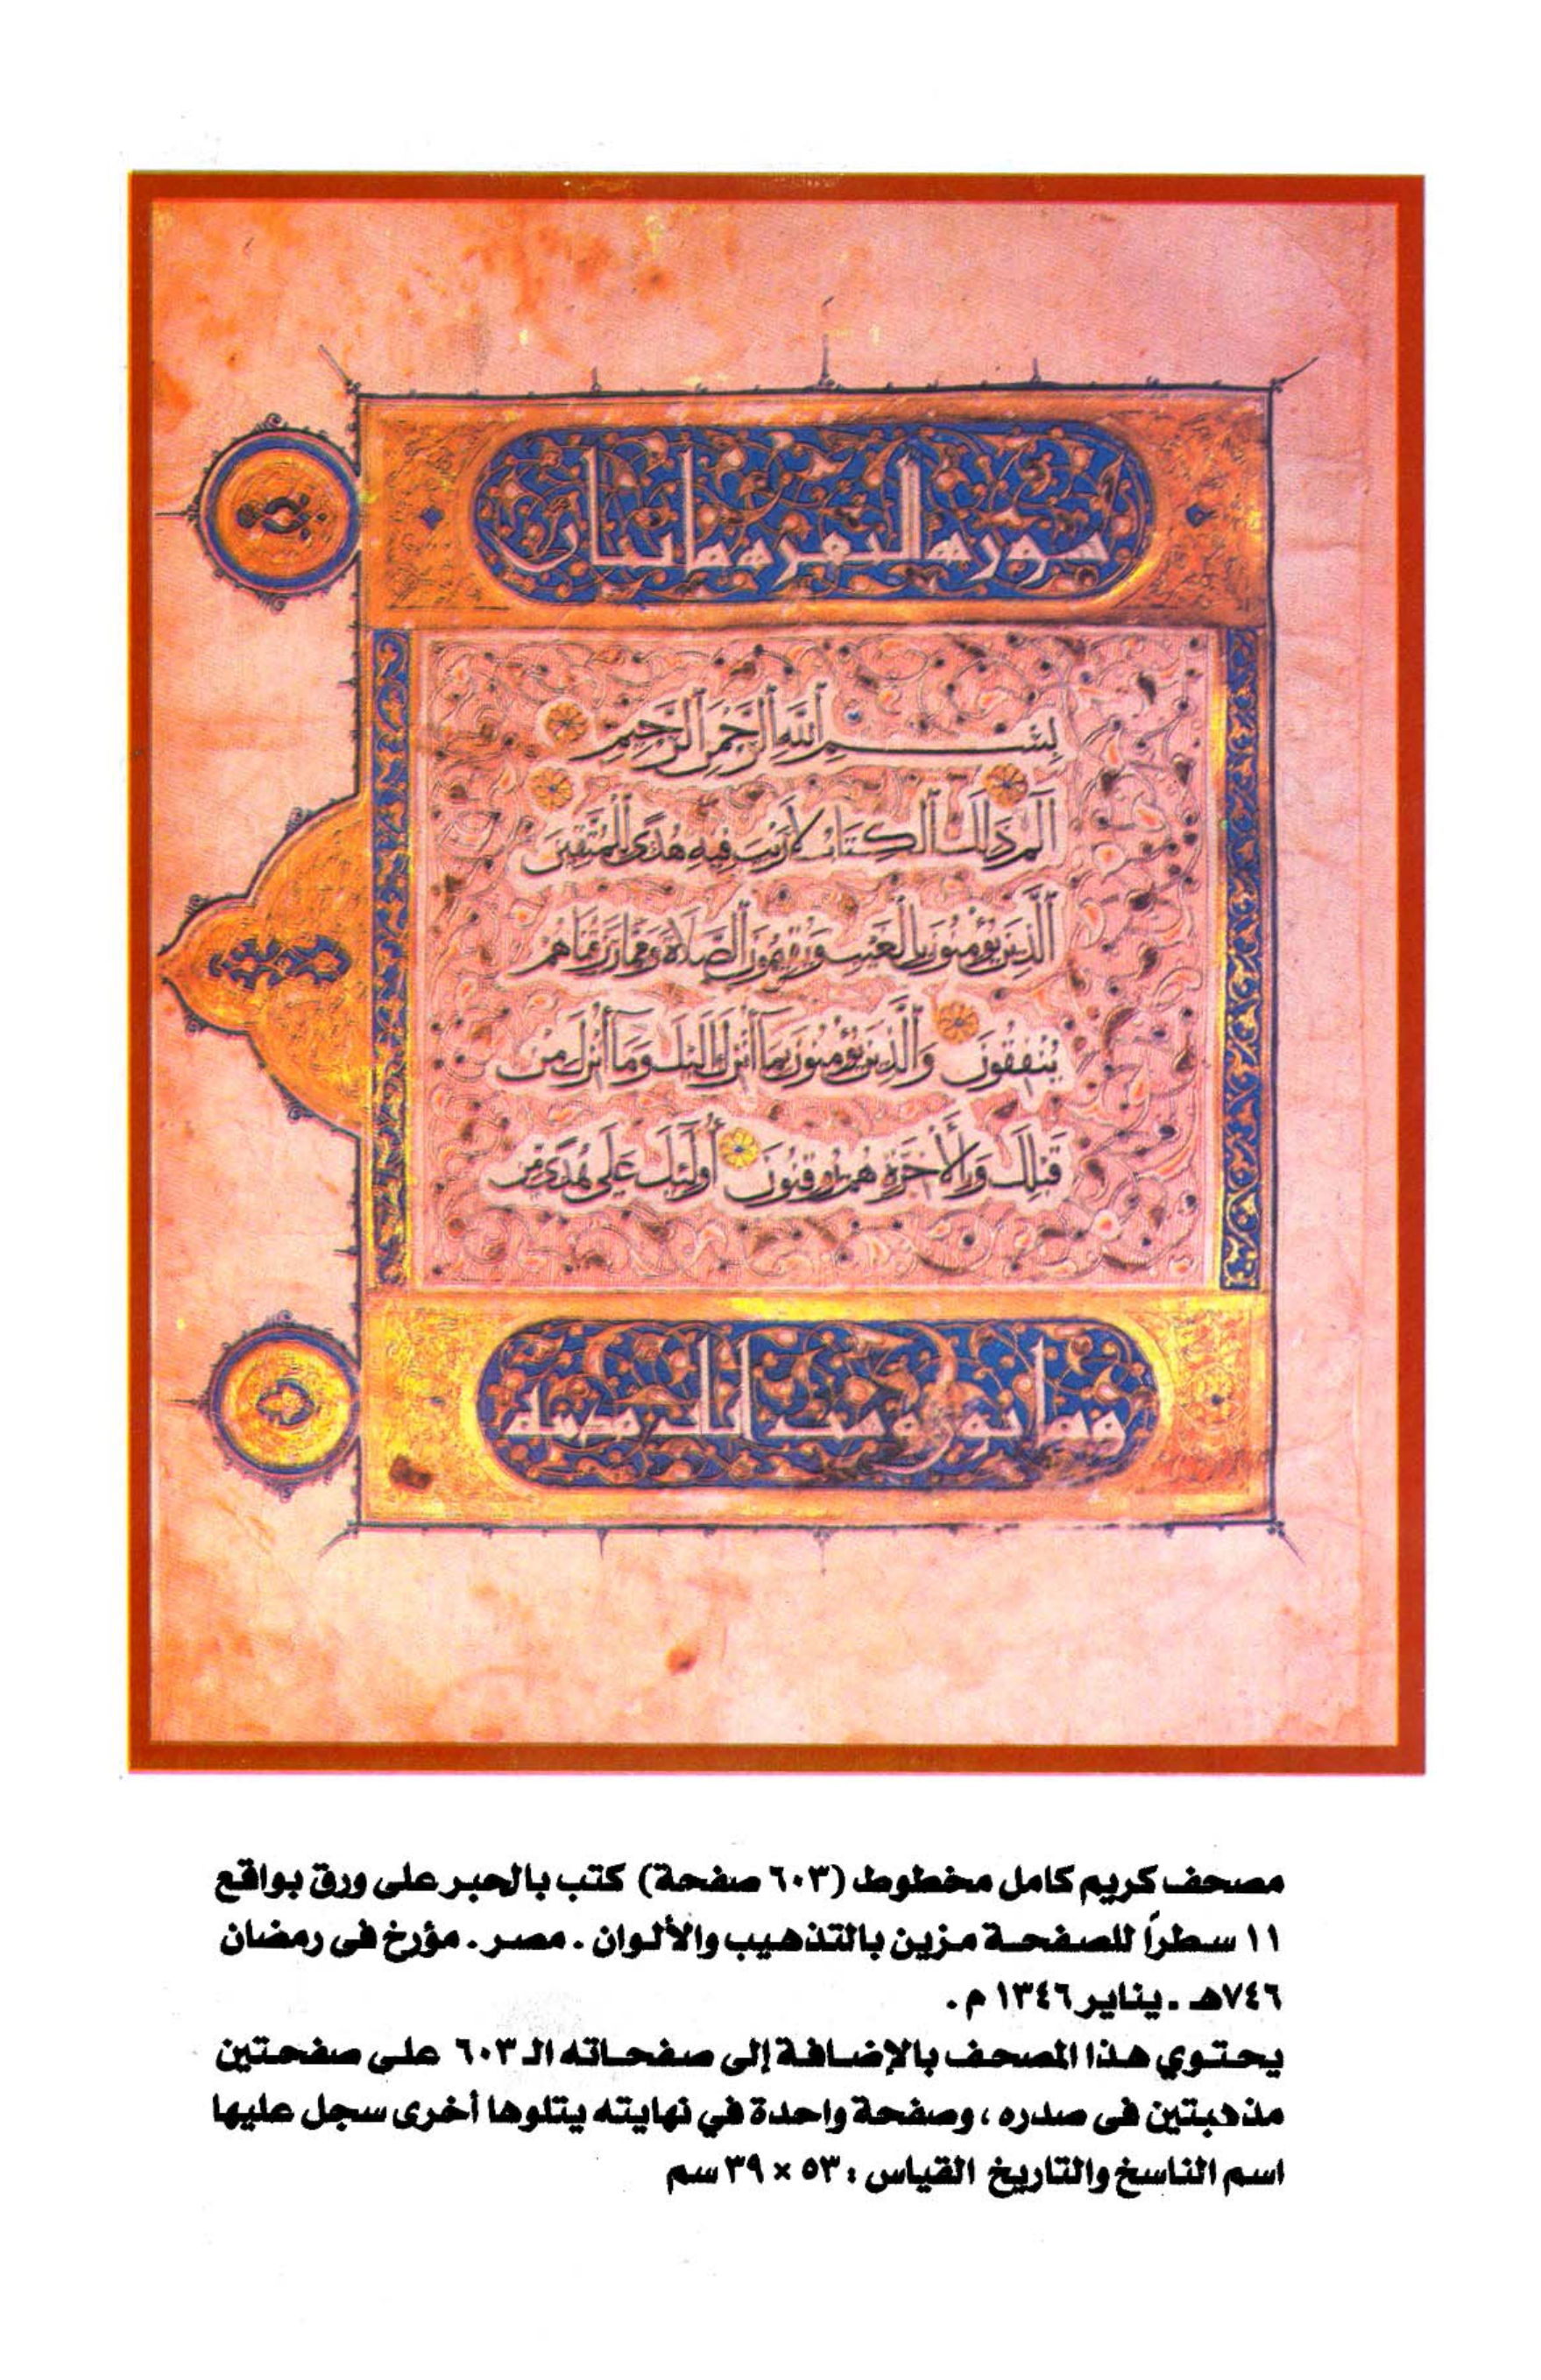 سورة البقرة مائتان
بِسْمِ اللَّهِ الرَّحْمَنِ الرَّحِيمِ
الم ذَلِكَ الْكِتَابُ لَا رَيْبَ فِيهِ هُدًى لِلْمُتَّقِينَ
الَّذِينَ يُؤْمِنُونَ بِالْغَيْبِ وَيُقِيمُونَ الصَّلَاةَ وَمِمَّا رَزَقْنَاهُمْ
يُنْفِقُونَ وَالَّذِينَ يُؤْمِنُونَ بِمَا أُنْزِلَ إِلَيْكَ وَمَا أُنْزِلَ مِنْ
قَبْلِكَ وَبِالْآخِرَةِ هُمْ يُوقِنُونَ أُولَئِكَ عَلَى هُدًى مِنْ
وثمانون وست آيات مدنية
مصحف كريم كامل مخطوط (٦٠٣ صفحة) كتب بالحبر على ورق بواقع
١١ سطراً للصفحة مزين بالتذهيب والألوان . مصر . مؤرخ فى رمضان
٧٤٦هـ . يناير ١٣٤٦ م .
يحتوي هذا المصحف بالإضافة إلى صفحاته الـ ٦٠٣ على صفحتين
مذهبتين فى صدره ، وصفحة واحدة في نهايته يتلوها أخرى سجل عليها
اسم الناسخ والتاريخ القياس : ٥٣ × ٣٩ سم